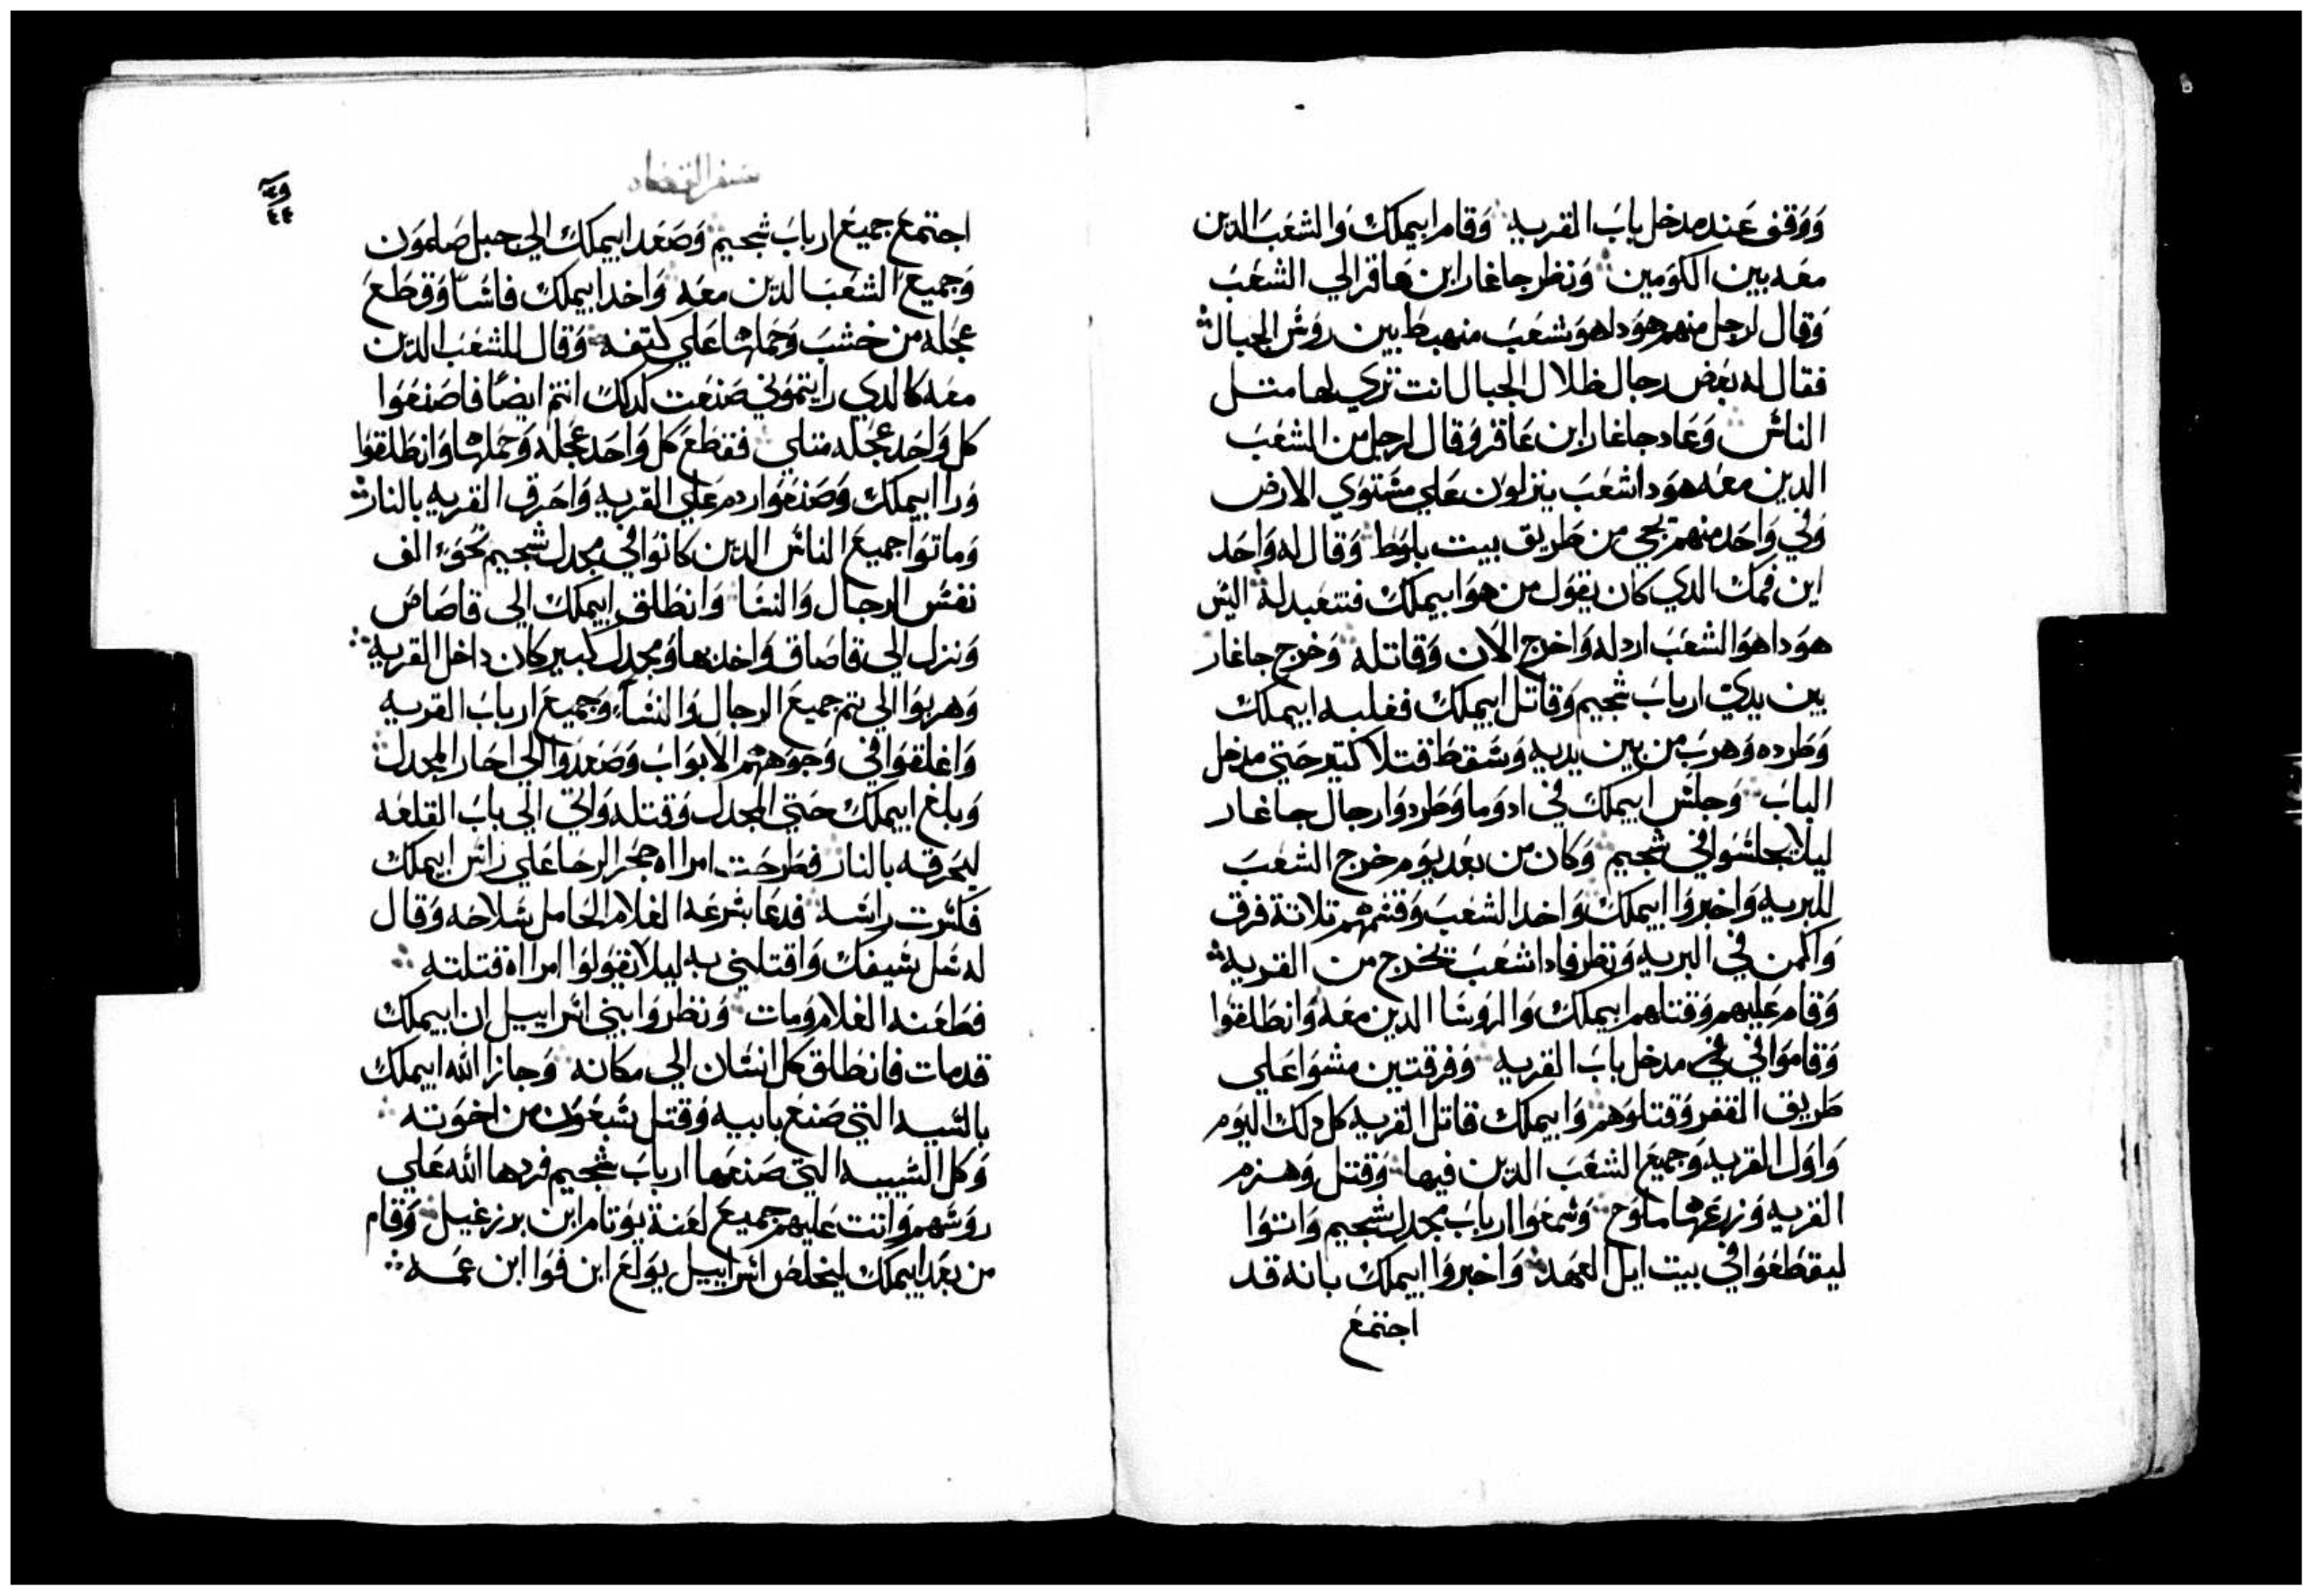 ووقف عند مدخل باب القريه وقام ابيملك والشعب الدين
معه بين الكومين ونظر جاغار ابن عاقر الي الشعب
وقال لرجل منهم هودا هو شعب منهبط بين روس الجبال
فقال له بعض رجال ظلال الجبال انت تري لها متل
الناس وعاد جاغار ابن عاقر وقال لرجل من الشعب
الدين معه هودا شعب ينزلون علي مستوي الارض
وفي واحد منهم يجي من طريق بيت بلوط وقال له واحد
اين فمك الدي كان يقول من هو ابيملك فنتعبد له اليس
هودا هو الشعب اردله واخرج الان وقاتله وخرج جاغار
بين يدي ارباب شجيم وقاتل ابيملك فغلبه ابيملك
وطرده وهرب من بين يديه وسقط قتلا كتير حتي مدخل
الباب وجلس ابيملك في ادوما وطردوا رجال جاغار
ليلا يجلسوا في شجيم وكان من بعد يوم خرج الشعب
للبريه واخبروا ابيملك واخد الشعب وقسمهم تلاتة فرق
واكمن في البريه ونظر فادا شعب تخرج من القريه
وقام عليهم وقتلهم ابيملك والروسا الدين معه وانطلقوا
وقاموا في في مدخل باب القريه وفرقتين مشوا علي
طريق القفر وقتلوهم وابيملك قاتل القريه كل دلك اليوم
واول القريه وجميع الشعب الدين فيها وقتل وهزم
القريه وزرعها ملوح وسمعوا ارباب مجدل شجيم واتوا
ليقطعوا في بيت ايل العهد واخبروا ابيملك بانه قد
اجتمع
سفر القضاه
٤٤
اجتمع جميع ارباب شجيم وصعد ابيملك الي جبل صلمون
وجميع الشعب الدين معه واخد ابيملك فاسا وقطع
عجله من خشب وحملها علي كتفه وقال للشعب الدين
معه كالدي رايتموني صنعت كدلك انتم ايضا فاصنعوا
كل واحد عجله متلي فقطع كل واحد عجله وحملها وانطلقوا
ورا ابيملك وصنعوا ردم علي القريه واحرق القريه بالنار
وماتوا جميع الناس الدين كانوا في مجدل شجيم نحو الف
نفس الرجال والنسا وانطلق ابيملك الي قاصاص
ونزل الي قاصاق واخدها ومجدل كبير كان داخل القريه
وهربوا الي تم جميع الرجال والنسا وجميع ارباب القريه
واغلقوا في وجوههم الابواب وصعدوا الي احار المجدل
وبلغ ابيملك حتي المجدل وقتله واتي الي باب القلعه
ليحرقه بالنار فطرحت امراه حجر الرحا علي راس ابيملك
فكسرت راسه فدعا بسرعه الغلام الحامل سلاحه وقال
له سل سيفك واقتلني به ليلا تقولوا امراه قتلته
فطعنه الغلام ومات ونظروا بني اسراييل ان ابيملك
قد مات فانطلق كل انسان الي مكانه وجازا الله ابيملك
بالسيه التي صنع بابيه وقتل سبعون من اخوته
وكل السييه التي صنعها ارباب شجيم فردها الله علي
روسهم واتت عليهم جميع لعنة يوتام ابن برزغيل وقام
من بعد ابيملك ليخلص اسراييل يولغ ابن فوا ابن عمه